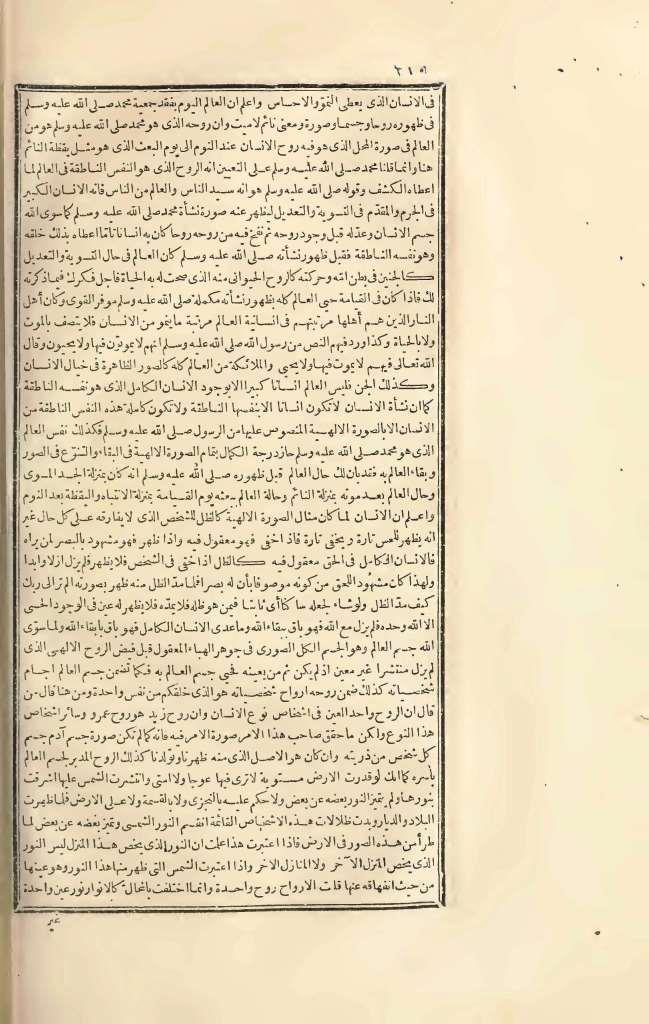 في الانسان الذي يعطى النمو والاحساس واعلم ان العالم اليوم بفقد جمعية محمد صلى الله عليه وسلم
في ظهوره روحا وجسما وصورة ومعنى نائم لا ميت وان روحه الذي هو محمد صلى الله عليه وسلم هو من
العالم في صورة المحل الذي هو فيه روح الانسان عند النوم الى يوم البعث الذي هو مثل يقظة النائم
هنا وانما قلنا محمد صلى الله عليه وسلم على التعيين انه الروح الذي هو النفس الناطقة في العالم لما
اعطاه الكشف وقوله صلى الله عليه وسلم هو انه سيد الناس والعالم من الناس فانه الانسان الكبير
في الجرم والمقدم في التسوية والتعديل ليظهر عنه صورة نشأة محمد صلى الله عليه وسلم كما سوى الله
جسم الانسان وعدله قبل وجود روحه ثم نفخ فيه من روحه روحا كان به انسانا تاما اعطاه بذلك خلقه
وهو نفسه الناطقة فقبل ظهور نشأته صلى الله عليه وسلم كان العالم في حال التسوية والتعديل
كالجنين في بطن امه وحركته كالروح الحيواني منه الذي صحت له به الحياة فاجل فكرك فيما ذكرته
لك فاذا كان في القيامة حيي العالم كله بظهور نشأته مكملة صلى الله عليه وسلم موفر القوى وكان أهل
النار الذين هم أهلها مرتبتهم في انسانية العالم مرتبة ما ينمو من الانسان فلا يتصف بالموت
ولا بالحياة وكذا ورد فيهم النص من رسول الله صلى الله عليه وسلم انهم لا يموتون فيها ولا يحيون وقال
الله تعالى فيهم لا يموت فيها ولا يحيى والملائكة من العالم كله كالصور الظاهرة في خيال الانسان
وكذلك الجن فليس العالم انسانا كبيرا الا بوجود الانسان الكامل الذي هو نفسه الناطقة
كما ان نشأة الانسان لا تكون انسانا الا بنفسها الناطقة ولا تكون كاملة هذه النفس الناطقة من
الانسان الا بالصورة الالهية المنصوص عليها من الرسول صلى الله عليه وسلم فكذلك نفس العالم
الذي هو محمد صلى الله عليه وسلم حاز درجة الكمال بتمام الصورة الالهية في البقاء والتنوع في الصور
وبقاء العالم به فقد بان لك حال العالم قبل ظهوره صلى الله عليه وسلم انه كان بمنزلة الجسد المسوى
وحال العالم بعد موته بمنزلة النائم وحالة العالم ببعثه يوم القيامة بمنزلة الانتباه واليقظة بعد النوم
واعلم ان الانسان لما كان مثال الصورة الالهية كالظل للشخص الذي لا يفارقه على كل حال غير
انه يظهر للحس تارة ويخفى تارة فاذا خفى فهو معقول فيه واذا ظهر فهو مشهود بالبصر لمن يراه
فالانسان الكامل في الحق معقول فيه كالظل اذا خفى في الشخص فلا يظهر فلم يزل ازلا وابدا
ولهذا كان مشهودا للحق من كونه موصوفا بأن له بصرا فلما مد الظل منه ظهر بصورته الم تر الى ربك
كيف مد الظل ولو شاء لجعله ساكنا أي ثابتا فيمن هو ظله فلا يمده فلا يظهر له عين في الوجود الحسي
الا الله وحده فلم يزل مع الله فهو باق ببقاء الله وما عدى الانسان الكامل فهو باق بابقاء الله ولما سوى
الله جسم العالم وهو الجسم الكل الصورى في جوهر الهباء المعقول قبل فيض الروح الالهي الذي
لم يزل منتشرا غير معين اذ لم يكن ثم من يعينه فحيي جسم العالم به فكما تضمن جسم العالم اجسام
شخصياته كذلك ضمن روحه ارواح شخصياته هو الذي خلقكم من نفس واحدة ومن هنا قال من
قال ان الروح واحد العين في اشخاص نوع الانسان وان روح زيد هو روح عمرو وسائر اشخاص
هذا النوع ولكن ما حقق صاحب هذا الامر صورة الامر فيه فانه كما لم تكن صورة جسم آدم جسم
كل شخص من ذريته وان كان هو الاصل الذي منه ظهرنا وتولدنا كذلك الروح المدبر لجسم العالم
بأسره كما انك لو قدرت الارض مستوية لا ترى فيها عوجا ولا امتى وانتشرت الشمس عليها اشرقت
بنورها ولم يتميز النور بعضه عن بعض ولا حكم عليه بالتجزى ولا بالقسمة ولا على الارض فلما ظهرت
البلاد والديار وبدت ظلالات هذه الاشخاص القائمة انقسم النور الشمسى وتميز بعضه عن بعض لما
طرأ من هذه الصور في الارض فاذا اعتبرت هذا علمت ان النور الذي يخص هذا المنزل ليس النور
الذي يخص المنزل الآخر ولا المنازل الاخر واذا اعتبرت الشمس التي ظهر منها هذا النور وهو عينها
من حيث انفهاقه عنها قلت الارواح روح واحدة وانما اختلفت بالمحال كالانوار نور عين واحدة
غير